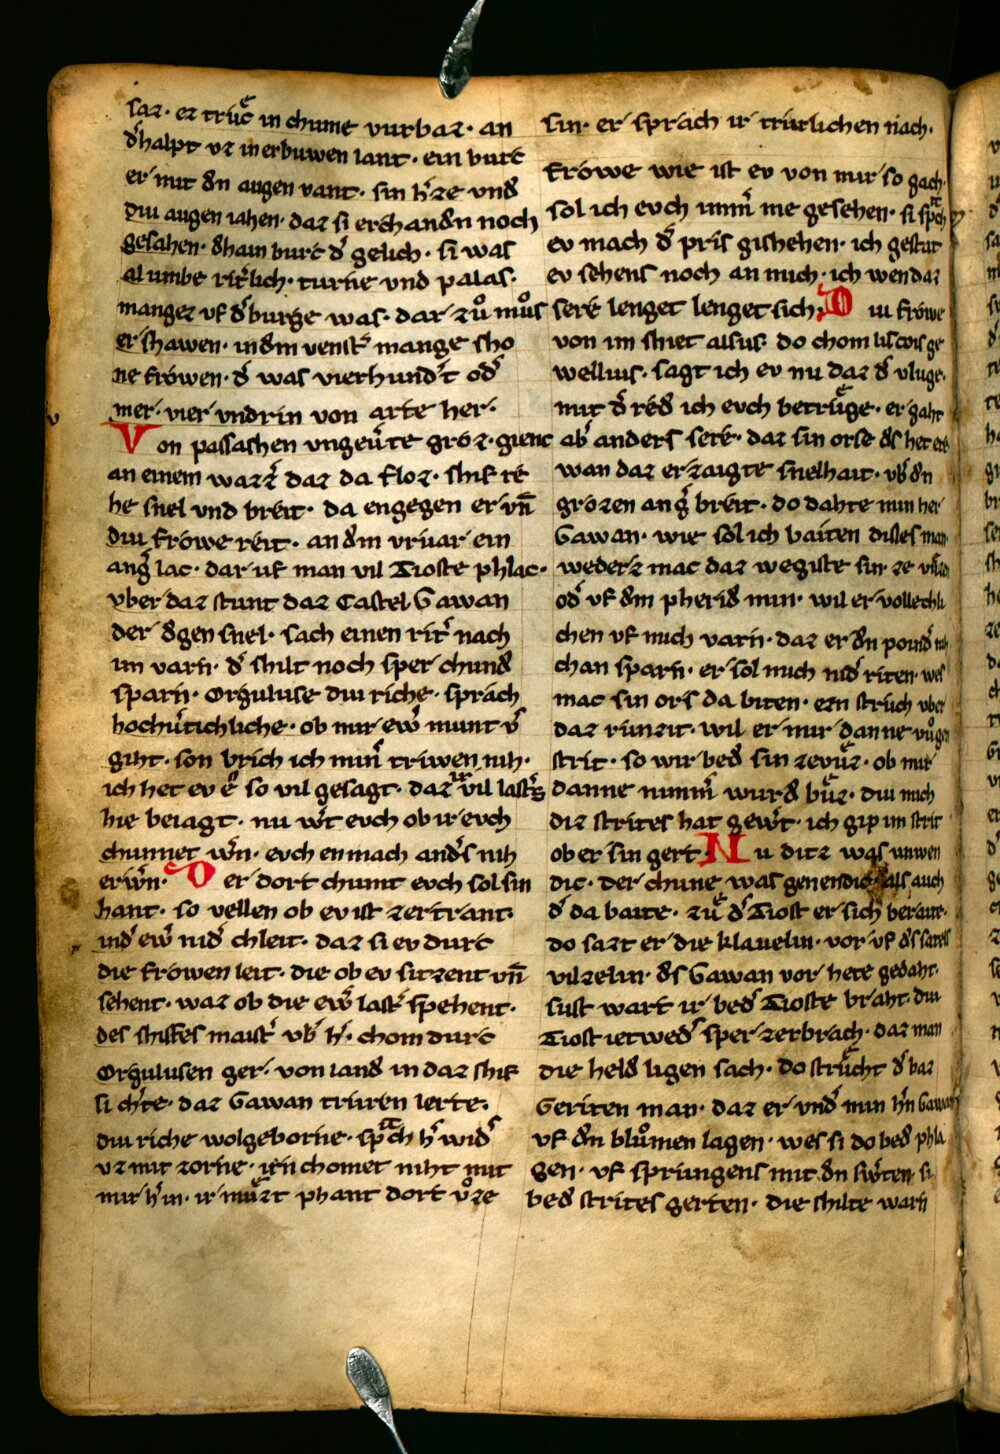 saz· er truͤc in chume vurbaz· an
dˀhalpt vz in erbuwen lant· ein burc
er mit dn augen vant· sin hˀze vnd
diu augen iahen· daz si erchandn noch
gesahen· dhain burc dˀ gelich· si was
al umbe ritˀlich· turne vnd palas·
manger vf dˀ burge was· dar zuͦ muͦs
er shawen· in dm venstˀ mange sho
ne frowen· dˀ was vierhundˀt odˀ
mer· vier vndrin von arte her·
Von passashen vngeuˀte groz· gienc
an einem wazzˀ daz da floz· shif re
he snel vnd breit· da engegen er vn̄
diu frowe reit· an dm vrvar ein
angˀ lac· dar uf man vil Tioste phlac·
vber daz stunt daz Castel Gawan
der dgen snel· sach einen ritˀ nach
im varn· dˀ shilt noch sper chund
sparn· Orguluse diu riche· sprach
hochuˀtichliche· ob mir ewˀ munt vˀ
giht· son brich ich minˀ triwen nih·
ich het ev eͤ so vil gesagt· daz ir vil lastˀs
hie beiagt· nu wˀt evch ob ir evch
chunnet wˀn· evch en mach andˀs nih
erwˀn· Der dort chumt evch sol sin
hant· so vellen ob ev ist zertrant·
indˀ ewˀ nidˀ chleit· daz si ev durc
die frowen leit· die ob ev sitzent vn̄
sehent· waz ob die ewˀ lastˀ spehent·
des shiffes maistˀ vbˀ hˀ· chom durc
Orgulusen ger· von land in daz shif
si chˀte· daz Gawan truren lerte·
diu riche wolgeborne· sprach hˀ widˀ
vz mit zorne· irn chomet niht mit
mir hˀ in· ir muͤzt phant dort vͦze
sin· er sprach ir trurlichen nach·
frowe wie ist ev von mir so gach·
sol ich evch immˀ me gesehen· si sprach
ev mach dˀ pris gishehen· ich gestat
ev sehens noch an mich· ich wen daz
sere lenget lenget sich· Diu frowe
von im shiet alsus· do chom liscois ge
wellius· sagt ich ev nu daz dˀ vluge·
mit dˀ red ich evch betruͤge· er gaht
abˀ anders sere· daz sin orse ds het ere
wan daz erzaigte snelhait· vbˀ dn
grozen angˀ breit· do dahte min her
Gawan· wie sol ich baiten disses man
wederz mac daz wegiste sin· ze vuͦzen
odˀ vf dm pherid min· wil er vollechli
chen vf mich varn· daz er dn poindˀ nih
chan sparn· er sol mich nidˀ riten· wes
mac sin ors da biten· ezn struch vber
daz runzit· wil er mir danne vuͦgen
strit· so wir bed sin zevuͤz· ob mir
danne nimmˀ wurd buͤz· diu mich
diz strites hat gewˀt· ich gip im strit
ob er sin gert· Nu ditz was vnwen
dic· der chune was genendic· als auch
dˀ da baite· zuͤ dˀ Tiost er sich beraite·
do sazt er die klauelin· vor vf ds satels
vilzelin· ds Gawan vor hete gedaht·
sust wart ir bedˀ Tioste braht· diu
Tiost ietwedˀ sper zerbrach· daz man
die held ligen sach· do struͤcht dˀ baz
Geriten man· daz er vndˀ min hˀn Gawan
vf dn bluͦmen lagen· wes si do bed phla
gen· vf springens mit dn swˀten· si
bed strites gerten· die shilte warn